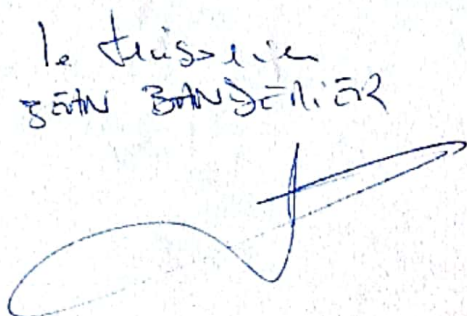 le trésorier
JEAN BANDERIER